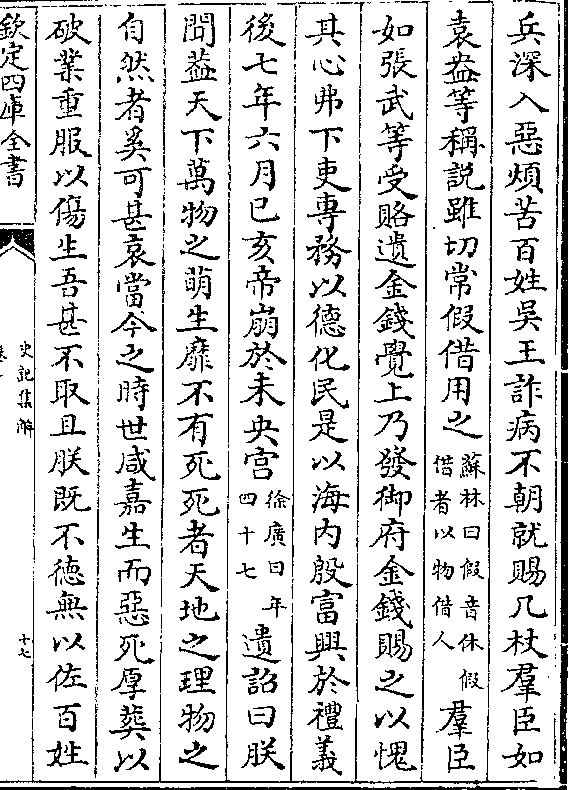 兵深入惡煩苦百姓吳王詐病不朝就賜几杖羣臣如
袁盎等稱説雖切常假借用之蘇林曰假音休假借者以物借人羣臣
如張武等受賂遺金錢覺上乃發御府金錢賜之以愧
其心弗下吏專務以德化民是以海内殷富興於禮義
後七年六月已亥帝崩於未央宫徐廣曰年四十七遺詔曰朕
聞葢天下萬物之萌生靡不有死死者天地之理物之
自然者奚可甚哀當今之時世咸嘉生而惡死厚葬以
破業重服以傷生吾甚不取且朕既不徳無以佐百姓
欽定四庫全書
史記集解
十七